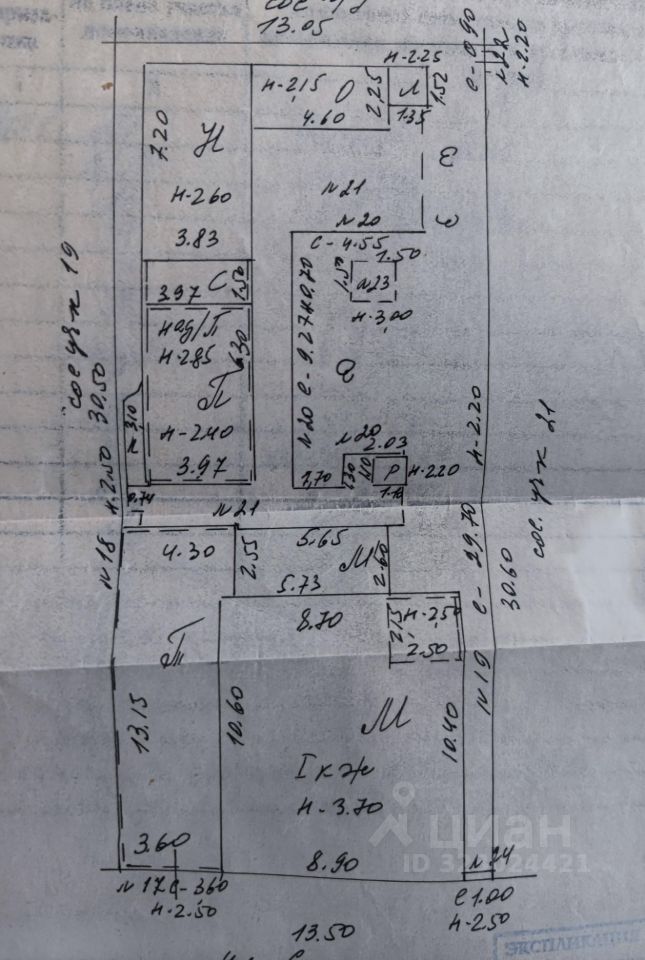 13.05
н-2.25
е-0.90
н-2.20
н-2,15
О
2,25
Л
1.52
4.60
1.35
7.20
Н
н-2.60
3.83
№21
№20
С-4.55
1.50
1.50
№23
н-3,00
3.97
С
1.50
над/П
н-2.85
6.30
П
н-2.40
3.97
сос уч-к 19
30.50
н-2.50
№18
№20
2.03
1,70
1.30
Р
н-2.20
1.10
0.74
№21
н-2.20
сос. уч-к 21
4.30
2.55
5.65
М
2.60
5.73
е-29.70
30.60
8.70
2,15
н-2,50
2.50
П
№19
13.15
10.60
М
10.40
I к ж
н-3.70
3.60
8.90
№17 е-3.60
н-2.50
№24
е 1.00
н-2.50
13.50
циан
ЭКСПЛИКАЦИЯ